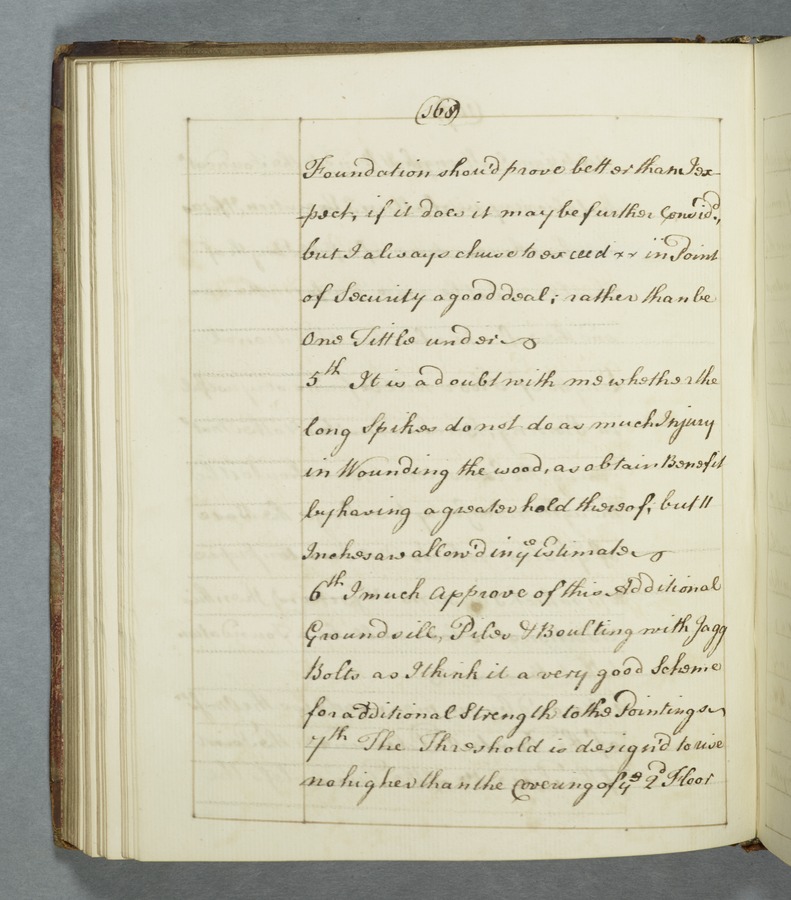 (168)
Foundation shou'd prove better than I ex-
-pect, if it does it may be further Consid.d,
but I always chuse to exceed in Point
of Security a good deal; rather than be
One Tittle under
5th It is a doubt with me whether the
long Spikes do not do as much Injury
in Wounding the wood, as obtain Benefit
by having a greater hold thereof; but 11
Inches are allow'd in ye Estimate
6th I much approve of this Additional
Groundsill, Piles & Boulting with Jagg
Bolts as I think it a very good Scheme
for additional Strength to the Pointings
7th The Threshold is design'd to rise
no higher than the Covering of ye 2d Floor